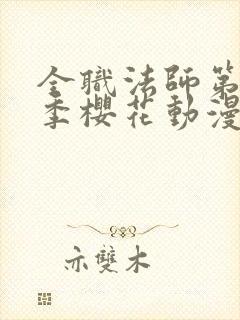 全職法師第
季櫻花動漫
亦雙木